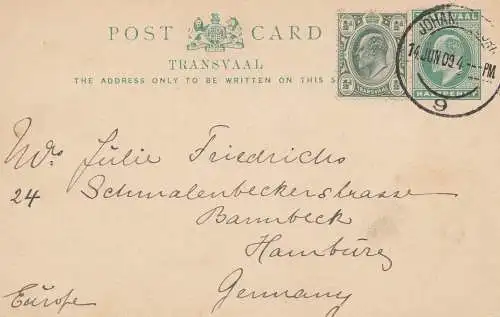 POST CARD
TRANSVAAL
THE ADDRESS ONLY TO BE WRITTEN ON THIS
TRANSVAAL
TRANSVAAL
HALFPENNY
14 JUN 09 4 PM
9
Mrs Julie Friedrichs
24 Schmalenbeckerstrasse
Barmbeck
Hamburg
Germany
Europe